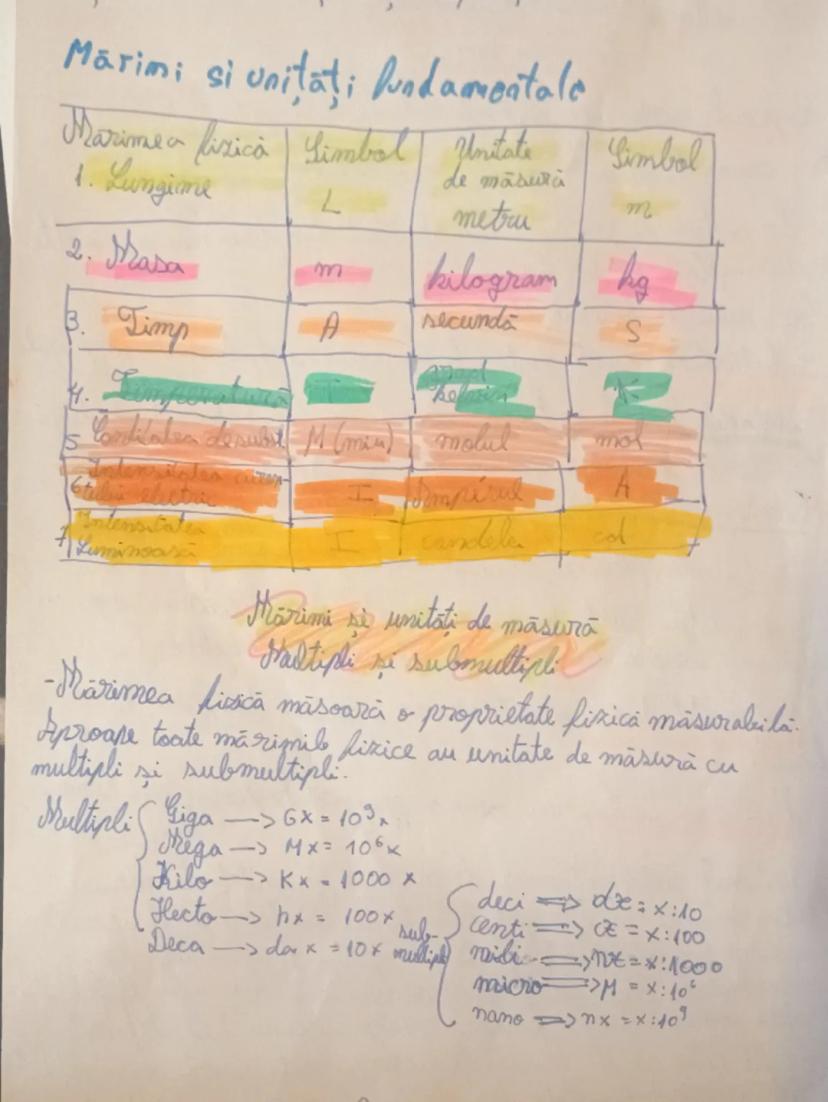 Mărimi si unități fundamentale
Mărimea fizică Simbol Unitate de măsură Simbol
1. Lungime L metru m
2. Masa m kilogram kg
3. Timp A secundă S
4. Temperatură T grad Kelvin K
5 Cantitatea de subst M (miu) molul mol
6 Intensitatea curen-
tului electric I Amperul A
7 Intensitatea
Luminoasă I candela cd
Mărimi și unități de măsură
Multipli și submultipli
-Mărimea fizică măsoară o proprietate fizică măsurabilă.
Aproape toate mărimile fizice au unitate de măsură cu
multipli și submultipli.
Multipli
Giga → Gx = 10⁹x
Mega → Mx = 10⁶x
Kilo → Kx = 1000 x
Hecto → hx = 100x
Deca → da x = 10x
sub-
multipli
deci ⇒ dx = x:10
centi ⇒ cx = x:100
mili ⇒ mx = x:1000
micro ⇒ M = x:10⁶
nano ⇒ nx = x:10⁹